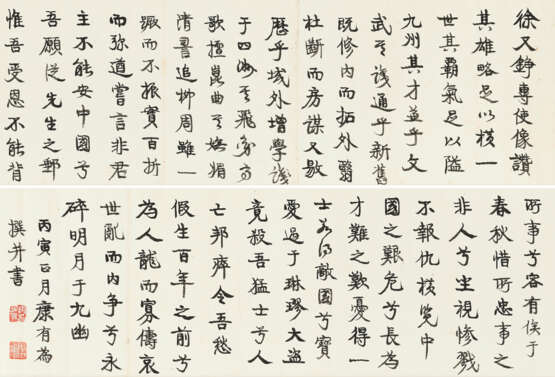 徐又錚專使像讚
其雄略足以橫一
世其霸氣足以隘
九州其才兼乎文
武其識通乎新舊
既修內而拓外翳
杜斷而房謀又敭
歷乎域外增學識
于四海其飛動
歌擅崑曲其嫵媚
清書追柳周雖一
蹶而不振實百折
而彌遒嘗言非君
主不能安中國兮
吾願從先生之郵
惟吾受恩不能背
所事兮容有俟于
春秋惜所忠事之
非人兮坐視慘戮
不報仇橫覽中
國之艱危兮長為
才難之歎憂得一
士敵國兮寶
愛過于琳璆大盜
竟殺吾猛士兮人
亡邦瘁令吾愁
假生百年之前兮
為人龍而寡儔哀
世亂而內爭兮永
碎明月于九幽
丙寅正月康有為
撰并書